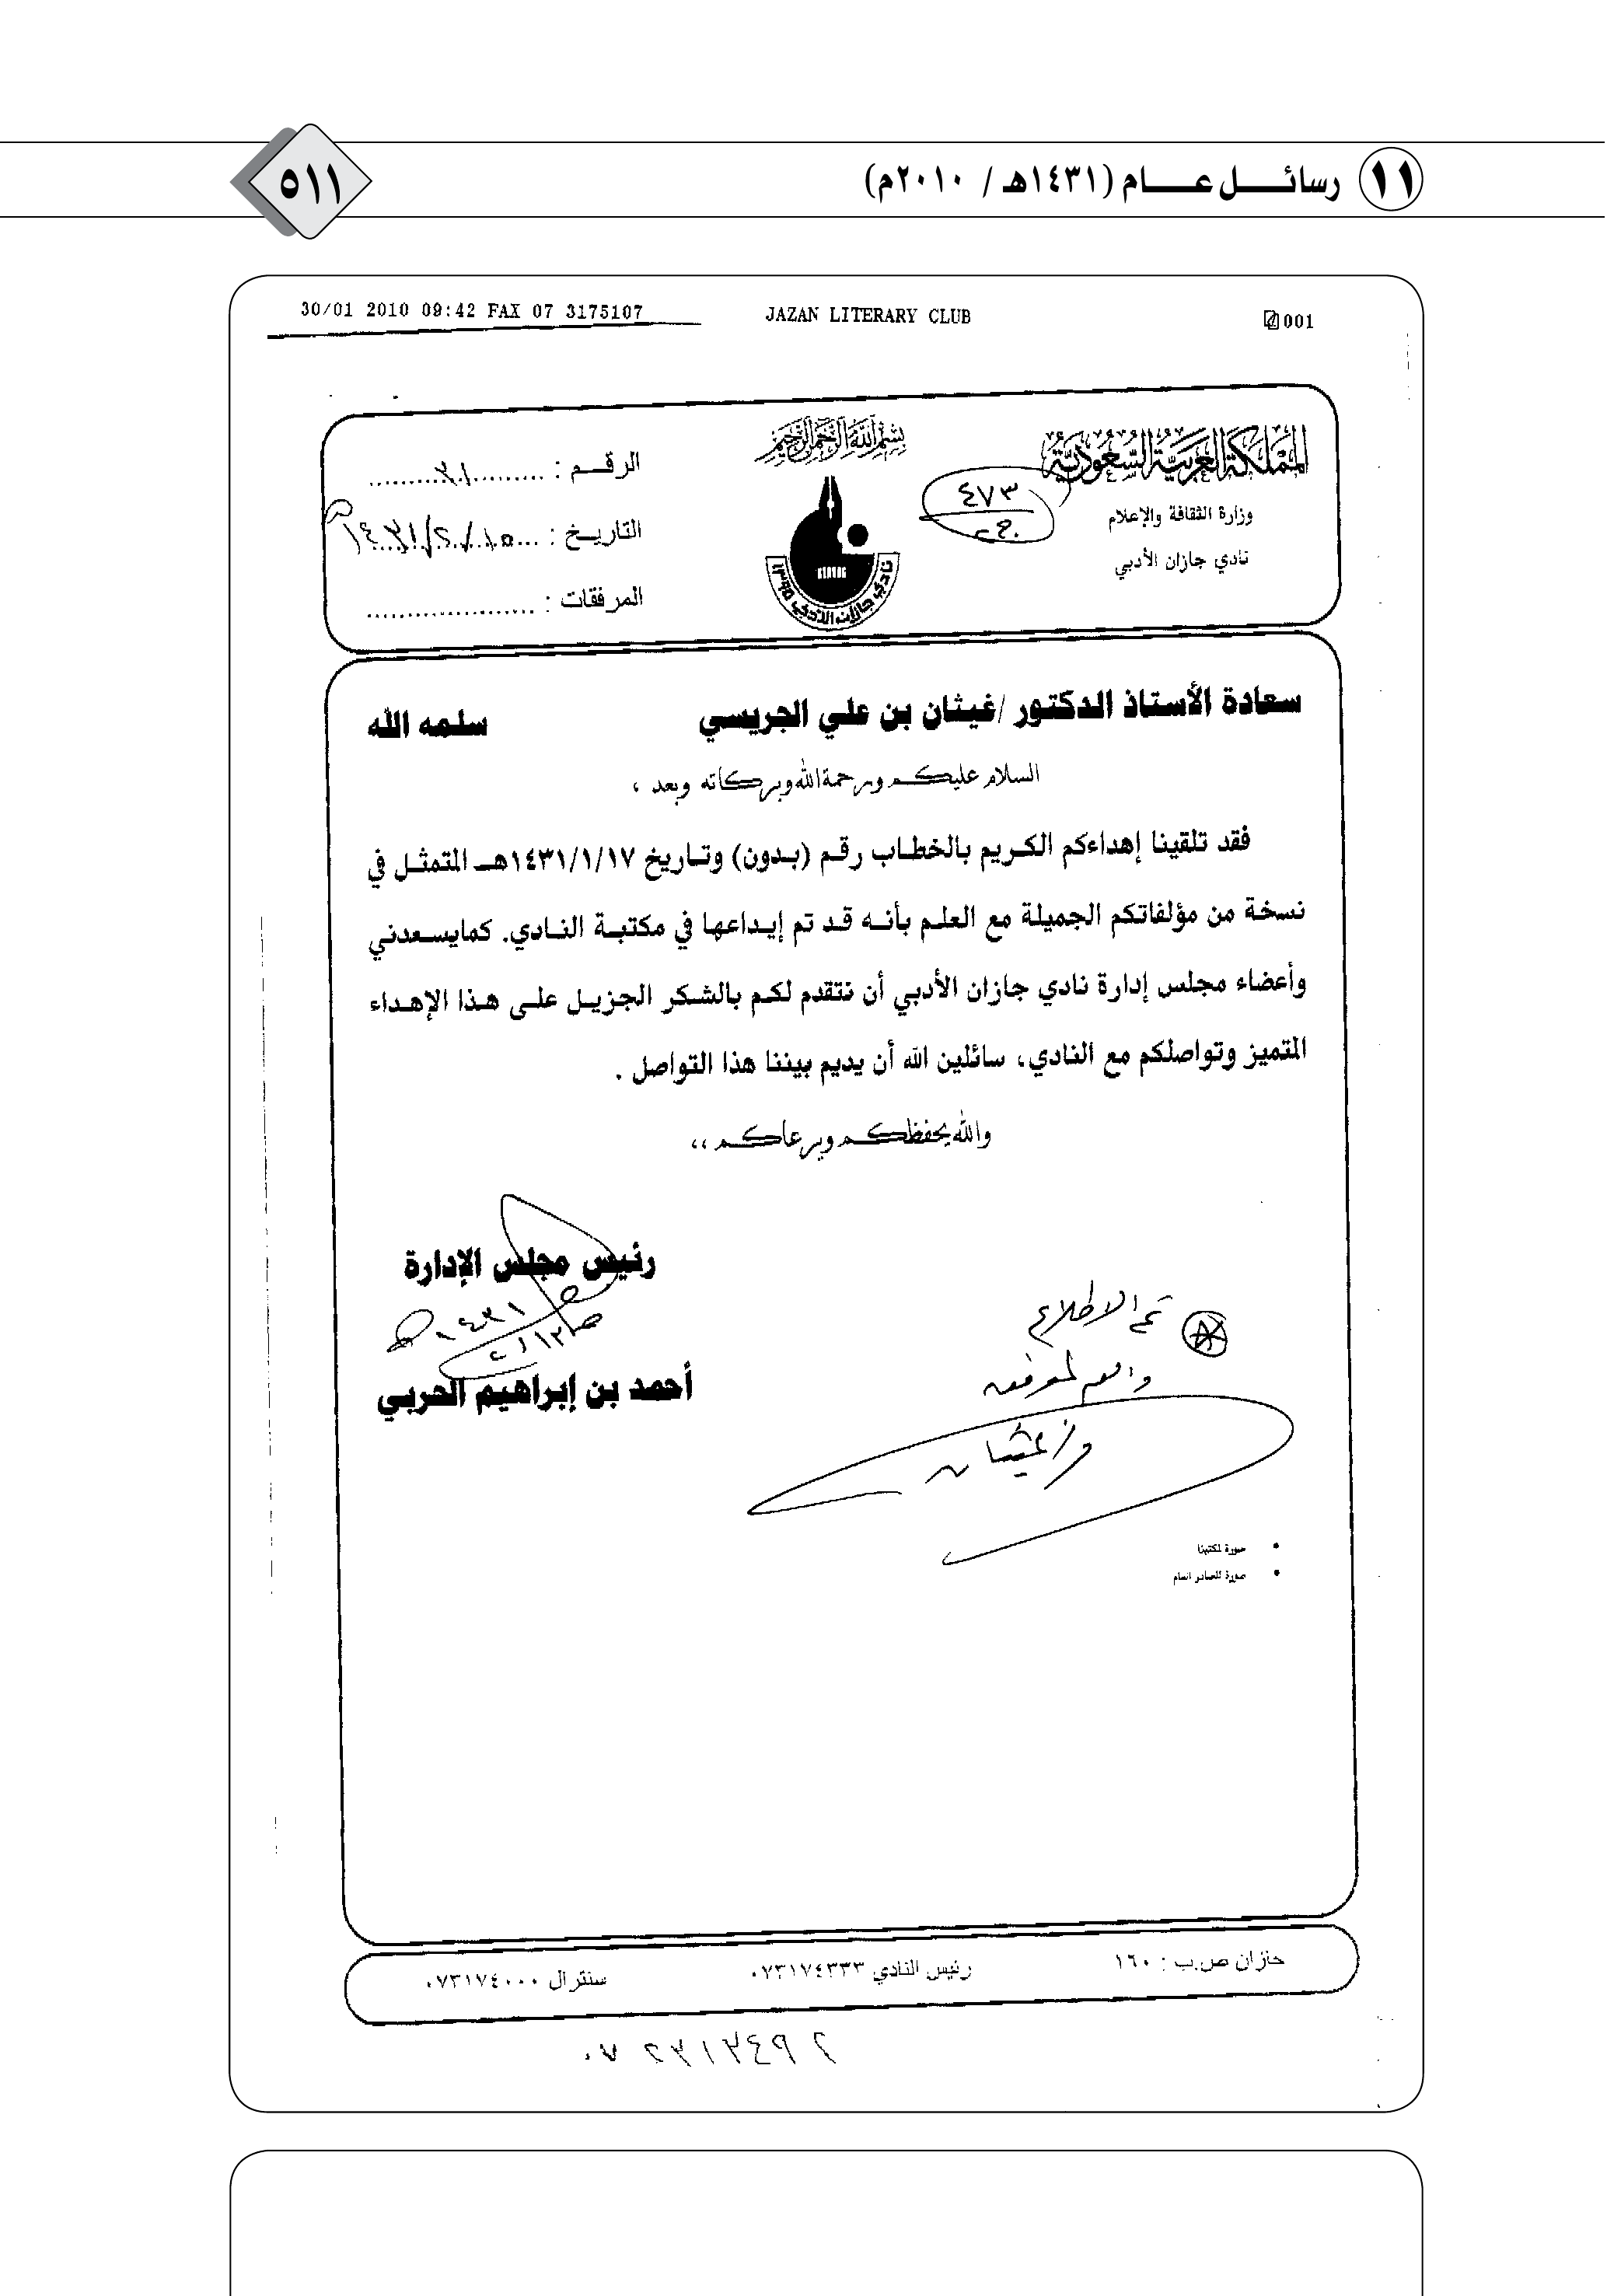 ١١ رسائل عام (١٤٣١هـ / ٢٠١٠م)
٥١١
30/01 2010 09:42 FAX 07 3175107 JAZAN LITERARY CLUB 001
المملكة العربية السعودية
وزارة الثقافة والإعلام
نادي جازان الأدبي
٤٧٣
بسم الله الرحمن الرحيم
نادي جازان الأدبي ١٣٩٥
الرقم :
التاريخ : ١٤٣١/٢/١٥
المرفقات :
سعادة الأستاذ الدكتور /غيثان بن علي الجريسي سلمه الله
السلام عليكم ورحمة الله وبركاته وبعد ،
فقد تلقينا إهداءكم الكريم بالخطاب رقم (بدون) وتاريخ ١٤٣١/١/١٧هـ المتمثل في
نسخة من مؤلفاتكم الجميلة مع العلم بأنه قد تم إيداعها في مكتبة النادي. كمايسعدني
وأعضاء مجلس إدارة نادي جازان الأدبي أن نتقدم لكم بالشكر الجزيل على هذا الإهداء
المتميز وتواصلكم مع النادي، سائلين الله أن يديم بيننا هذا التواصل .
والله يحفظكم ويرعاكم ،،
رئيس مجلس الإدارة
١٤٣١
أحمد بن إبراهيم الحربي
تم الاطلاع
صورة لمكتبنا
صورة للصادر العام
جازان ص.ب : ١٦٠ رئيس النادي ٠٧٣١٧٤٣٣٣ سنترال ٠٧٣١٧٤٠٠٠